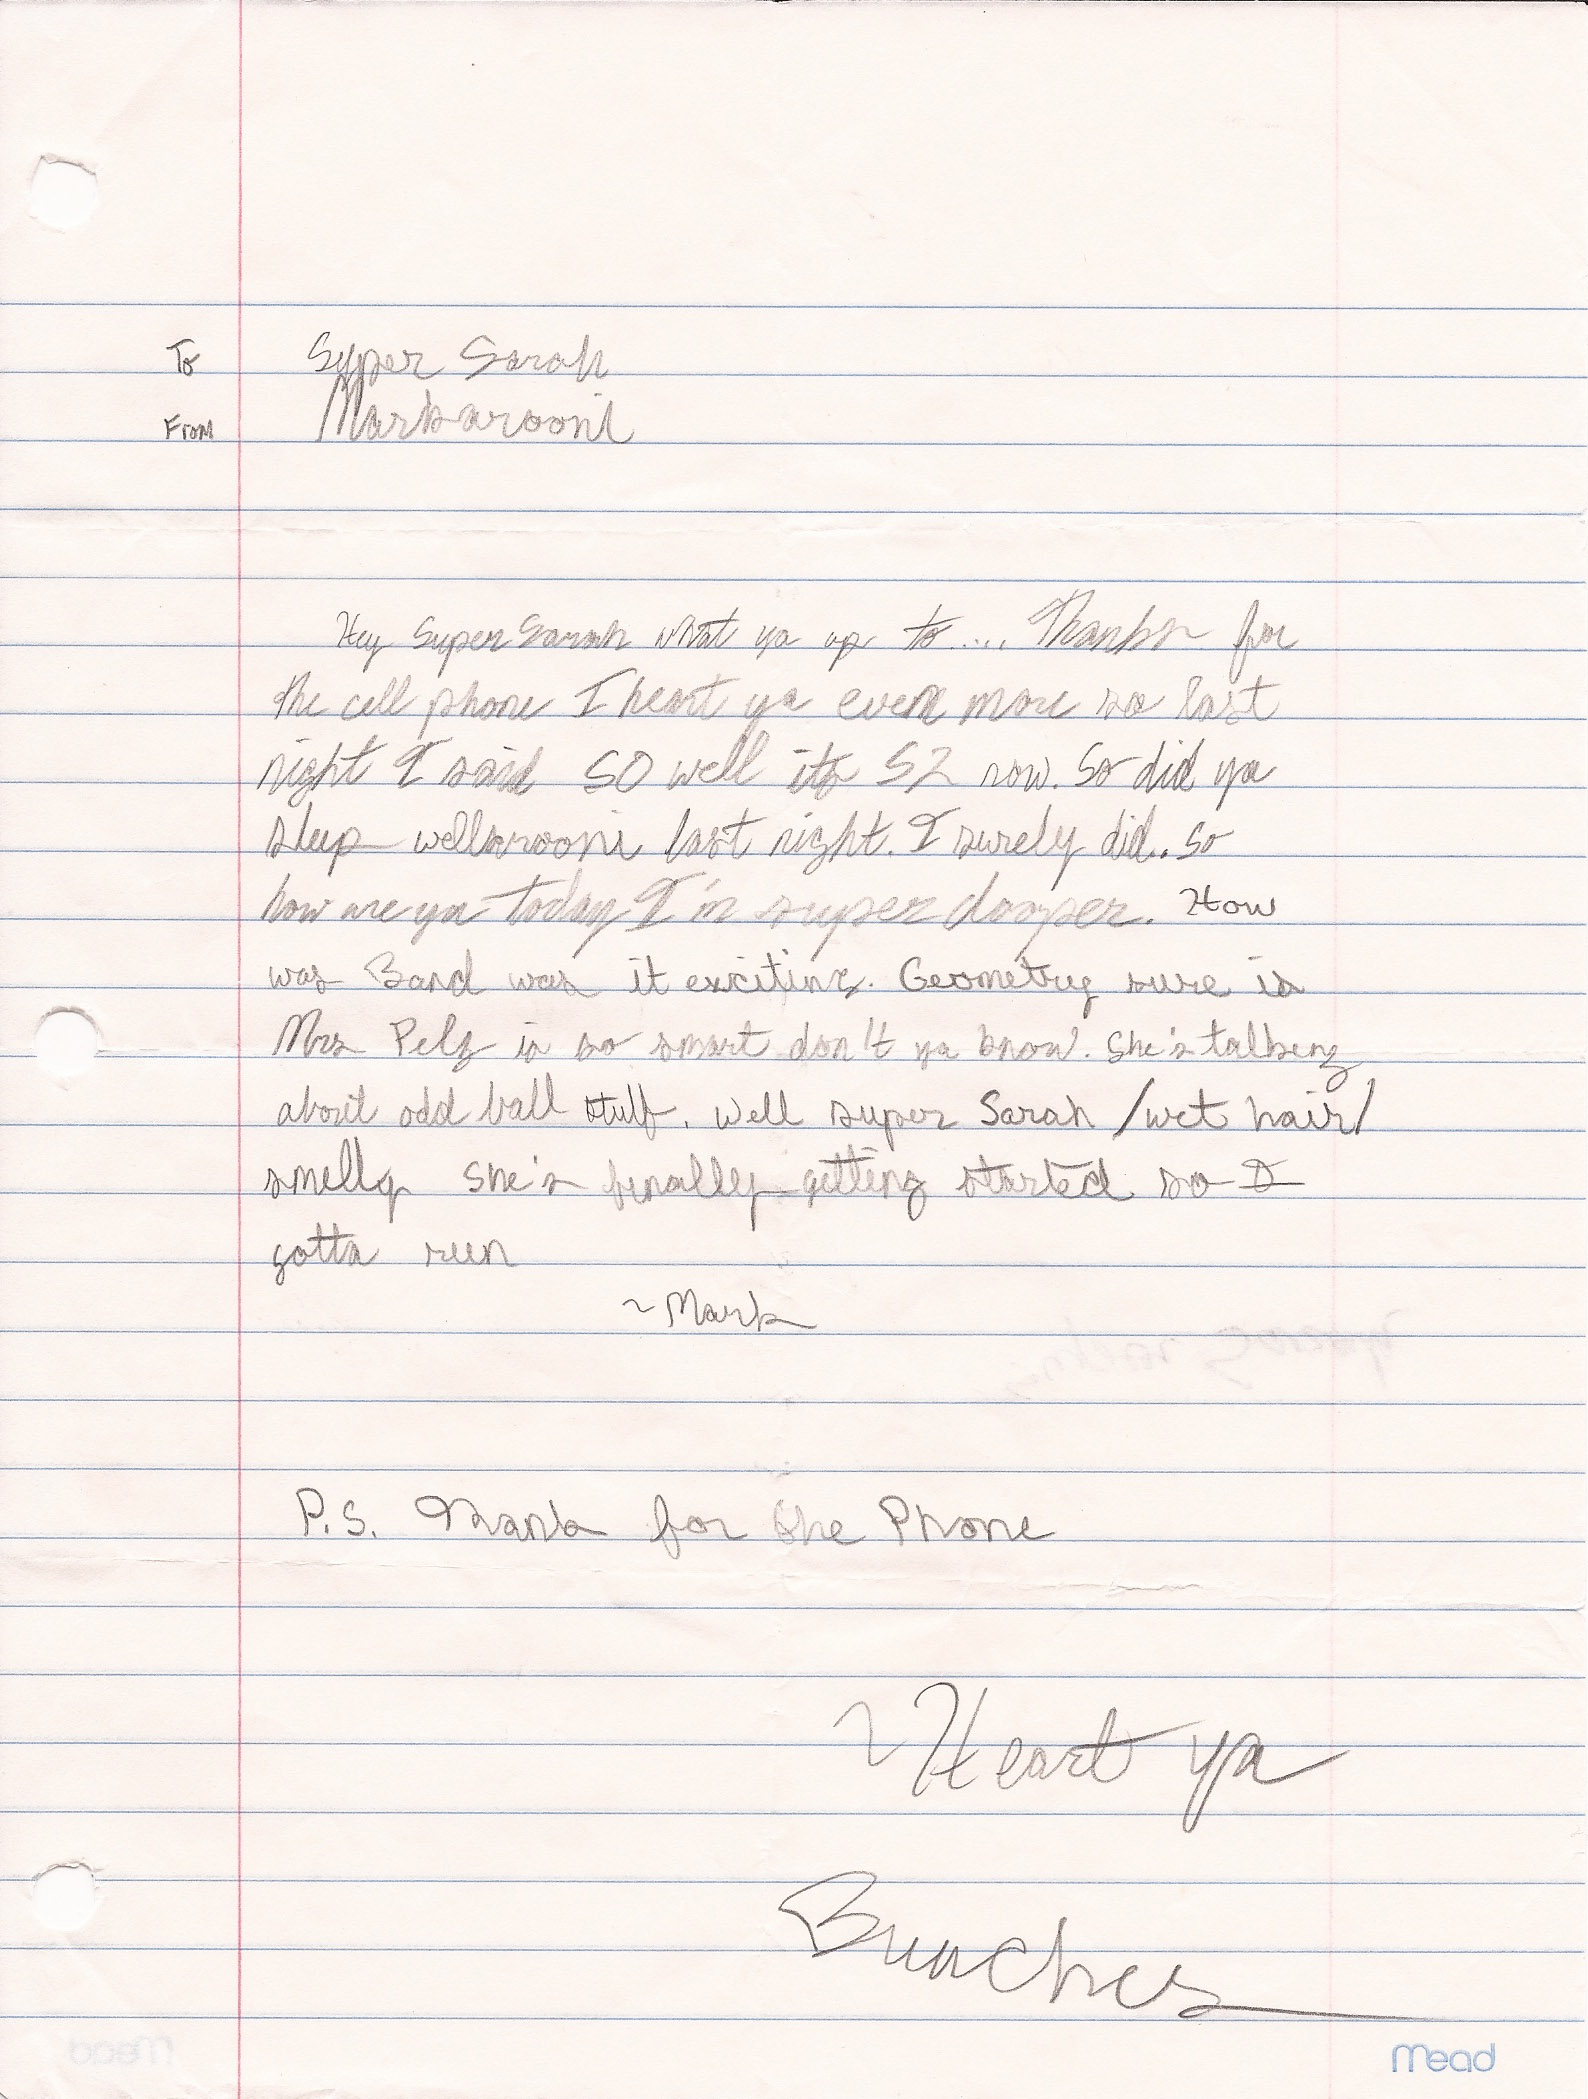 To Super Sarah
From Markarooni
Hey Super Sarah what ya up to..... Thanks for
the cell phone I heart ya even more so last
night I said 50 well its 52 now. So did ya
sleep wellarooni last night. I surely did. So
how are ya today I'm super dooper. How
was Band was it exciting. Geometry sure is
Mrs Pelz is so smart don't ya know. She's talking
about odd ball stuff. Well super Sarah /wet hair/
smelly she's finally getting started so I
gotta run
~Mark
P.S. Thanks for the Phone
~Heart ya
Bunches
Mead